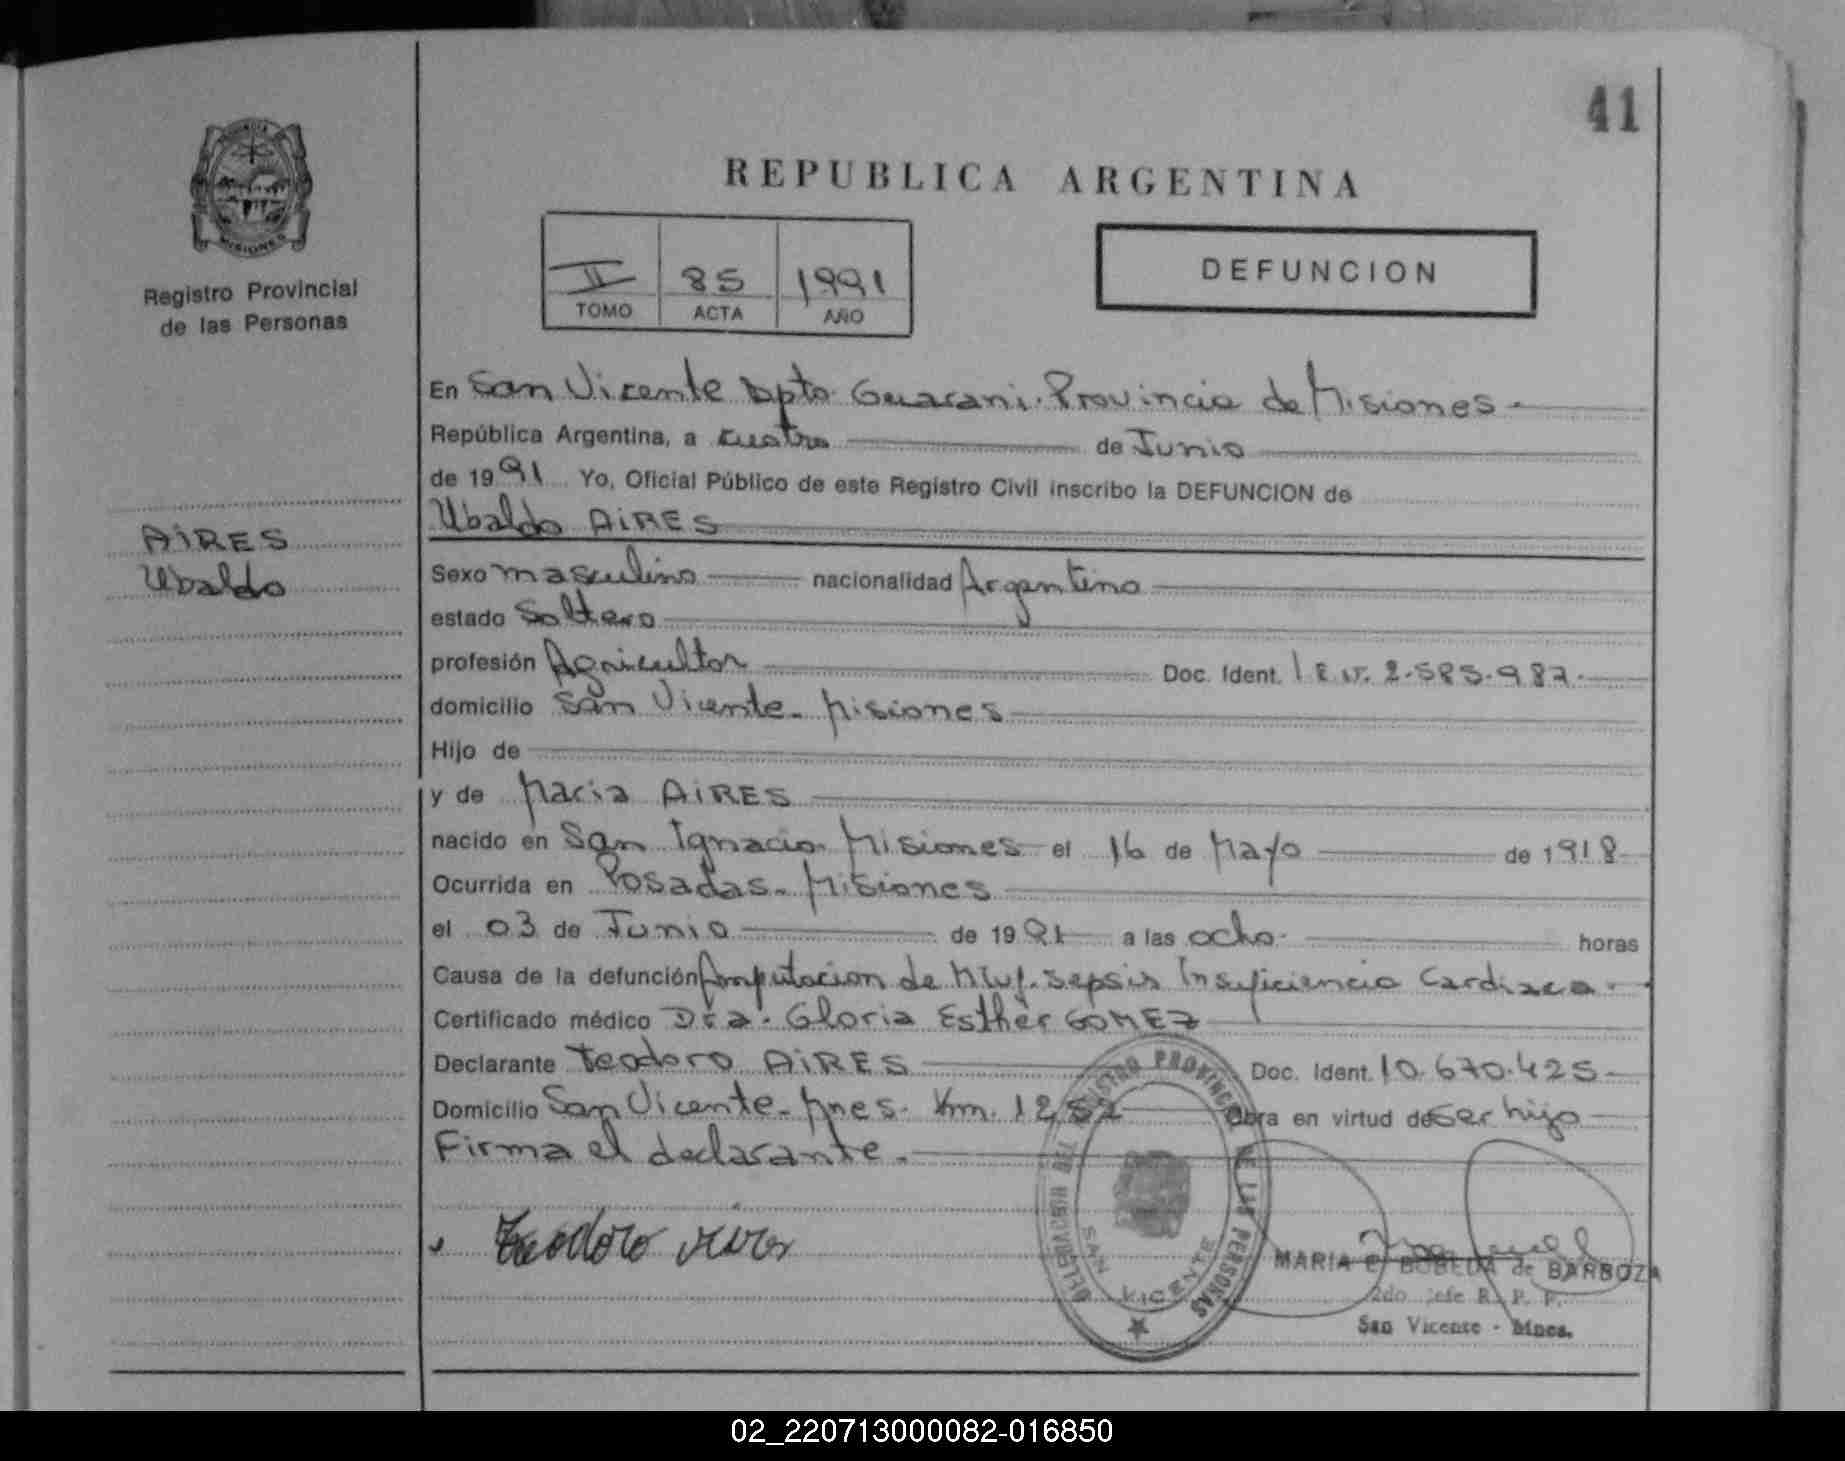 41
PROVINCIA
MISIONES
Registro Provincial
de las Personas
REPUBLICA ARGENTINA
II 85 1991
TOMO ACTA AÑO
DEFUNCION
En San Vicente Dpto. Guarani. Provincia de Misiones
República Argentina, a cuatro de Junio
de 1991 Yo, Oficial Público de este Registro Civil inscribo la DEFUNCION de
Ubaldo AIRES
AIRES
Ubaldo
Sexo masculino nacionalidad Argentino
estado Soltero
profesión Agricultor Doc. Ident. 2.585.987.
domicilio San Vicente. Misiones
Hijo de
y de Maria AIRES
nacido en San Ignacio. Misiones el 16 de Mayo de 1918
Ocurrida en Posadas. Misiones
el 03 de Junio de 1991 a las ocho. horas
Causa de la defunción Amputacion de Sepsis Insuficiencia Cardiaca.
Certificado médico Dra. Gloria Esther GOMEZ
Declarante Teodoro AIRES Doc. Ident. 10.670.425
Domicilio San Vicente. Mnes. Km. 1252 Obra en virtud de Ser hijo
Firma el declarante.
Teodoro
DELEGACION DEL REGISTRO PROVINCIAL DE LAS PERSONAS
SAN VICENTE
MARIA E. BOBEDA de BARBOZA
2do Jefe R. P. P.
San Vicente - Mnes.
02_220713000082-016850